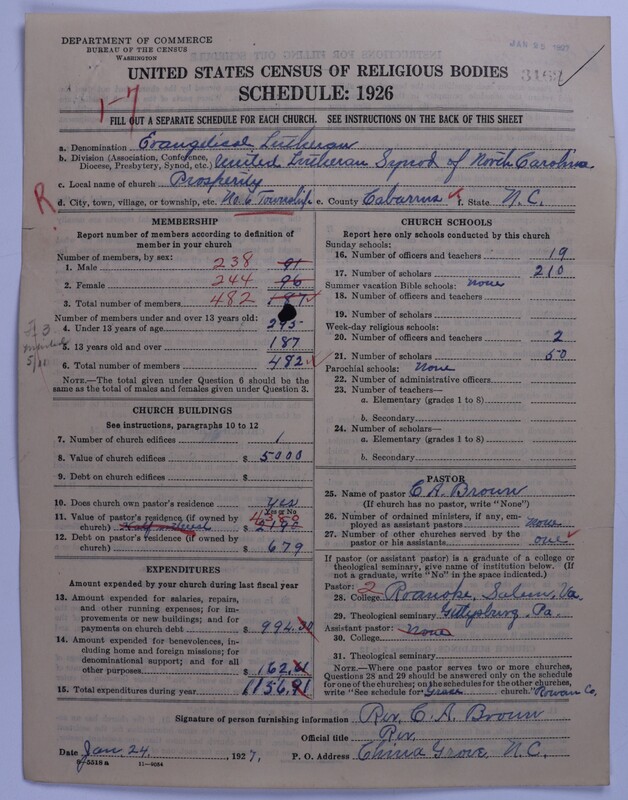 DEPARTMENT OF COMMERCE
BUREAU OF THE CENSUS
WASHINGTON
JAN 25 1927
3162
UNITED STATES CENSUS OF RELIGIOUS BODIES
SCHEDULE: 1926
1-7
FILL OUT A SEPARATE SCHEDULE FOR EACH CHURCH. SEE INSTRUCTIONS ON THE BACK OF THIS SHEET
a. Denomination Evangelical Lutheran
b. Division (Association, Conference, Diocese, Presbytery, Synod, etc.) United Lutheran Synod of North Carolina
c. Local name of church Prosperity
R. d. City, town, village, or township, etc. No. 6 Township e. County Cabarrus f. State N.C.
MEMBERSHIP
Report number of members according to definition of
member in your church
Number of members, by sex:
1. Male 238 91
2. Female 244 96
3. Total number of members 482 187
Number of members under and over 13 years old:
4. Under 13 years of age 295
5. 13 years old and over 187
6. Total number of members 482
NOTE.—The total given under Question 6 should be
same as the total of males and females given under Question 3.
CHURCH BUILDINGS
See instructions, paragraphs 10 to 12
7. Number of church edifices 1
8. Value of church edifices $ 5000
9. Debt on church edifices $
10. Does church own pastor's residence? Yes
Yes or No
11. Value of pastor's residence (if owned by
church) $
12. Debt on pastor's residence (if owned by
church) $ 679
EXPENDITURES
Amount expended by your church during last fiscal year
13. Amount expended for salaries, repairs,
and other running expenses; for im-
provements or new buildings; and for
payments on church debt $ 994.30
14. Amount expended for benevolences, in-
cluding home and foreign missions; for
denominational support; and for all
other purposes $ 162.61
15. Total expenditures during year $ 1156.91
CHURCH SCHOOLS
Report here only schools conducted by this church
Sunday schools:
16. Number of officers and teachers 19
17. Number of scholars 210
Summer vacation Bible schools: none
18. Number of officers and teachers
19. Number of scholars
Week-day religious schools:
20. Number of officers and teachers 2
21. Number of scholars 50
Parochial schools: None
22. Number of administrative officers
23. Number of teachers—
a. Elementary (grades 1 to 8)
b. Secondary
24. Number of scholars—
a. Elementary (grades 1 to 8)
b. Secondary
PASTOR
25. Name of pastor C. A. Brown
(If church has no pastor, write "None")
26. Number of ordained ministers, if any, em-
ployed as assistant pastors none
27. Number of other churches served by the
pastor or his assistants one
If pastor (or assistant pastor) is a graduate of a college or
theological seminary, give name of institution below. (If
not a graduate, write "No" in the space indicated.)
Pastor: 2
28. College Roanoke, Salem, Va.
29. Theological seminary Gettysburg, Pa.
Assistant pastor: None
30. College
31. Theological seminary
NOTE.—Where one pastor serves two or more churches,
Questions 28 and 29 should be answered only on the schedule
for one of the churches; on the schedules for the other churches,
write "See schedule for Grace church." Rowan Co.
Signature of person furnishing information Rev. C. A. Brown
Official title Rev.
Date Jan. 24 1927. P. O. Address China Grove, N.C.
8-5518 a 11—9084